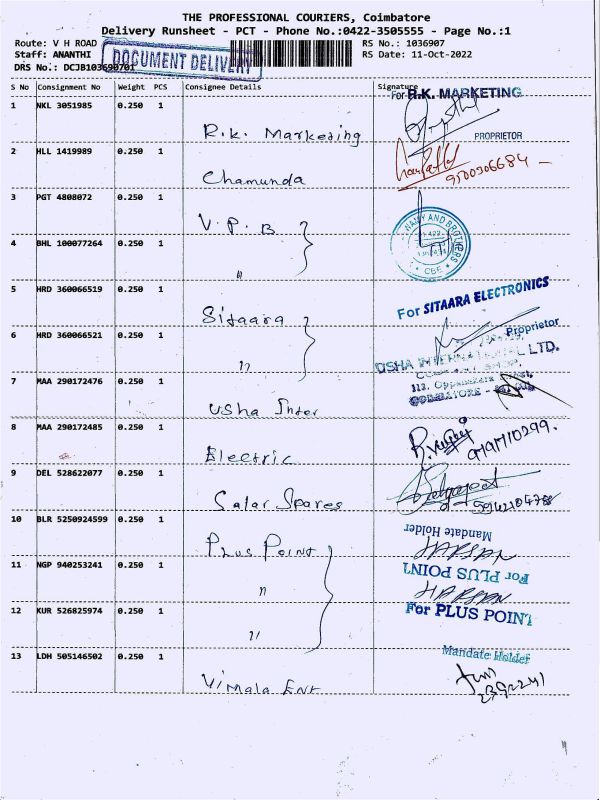 THE PROFESSIONAL COURIERS, Coimbatore
Delivery Runsheet - PCT - Phone No.:0422-3505555 - Page No.:1
Route: V H ROAD RS No.: 1036907
Staff: ANANTHI RS Date: 11-Oct-2022
DRS No.: DCJB103690701
DOCUMENT DELIVERY
S No Consignment No Weight PCS Consignee Details Signature
For R.K. MARKETING
1 NKL 3051985 0.250 1
R.K. Marketing
PROPRIETOR
2 HLL 1419989 0.250 1
9500506684
Chamunda
3 PGT 4808072 0.250 1
V.P.B
AND BROTHERS
CBE
4 BHL 100077264 0.250 1
"
5 HRD 360066519 0.250 1
For SITAARA ELECTRONICS
Sitaara
Proprietor
6 HRD 360066521 0.250 1
"
LTD.
7 MAA 290172476 0.250 1
112.
COIMBATORE
Usha Inter
8 MAA 290172485 0.250 1
Electric
9 DEL 528622077 0.250 1
Salar Spares
10 BLR 5250924599 0.250 1
Mandate Holder
Plus Point
HARSAN
11 NGP 940253241 0.250 1
For PLUS POINT
"
HARSAN
12 KUR 526825974 0.250 1
For PLUS POINT
"
13 LDH 505146502 0.250 1
Mandate Holder
Vimala Ent